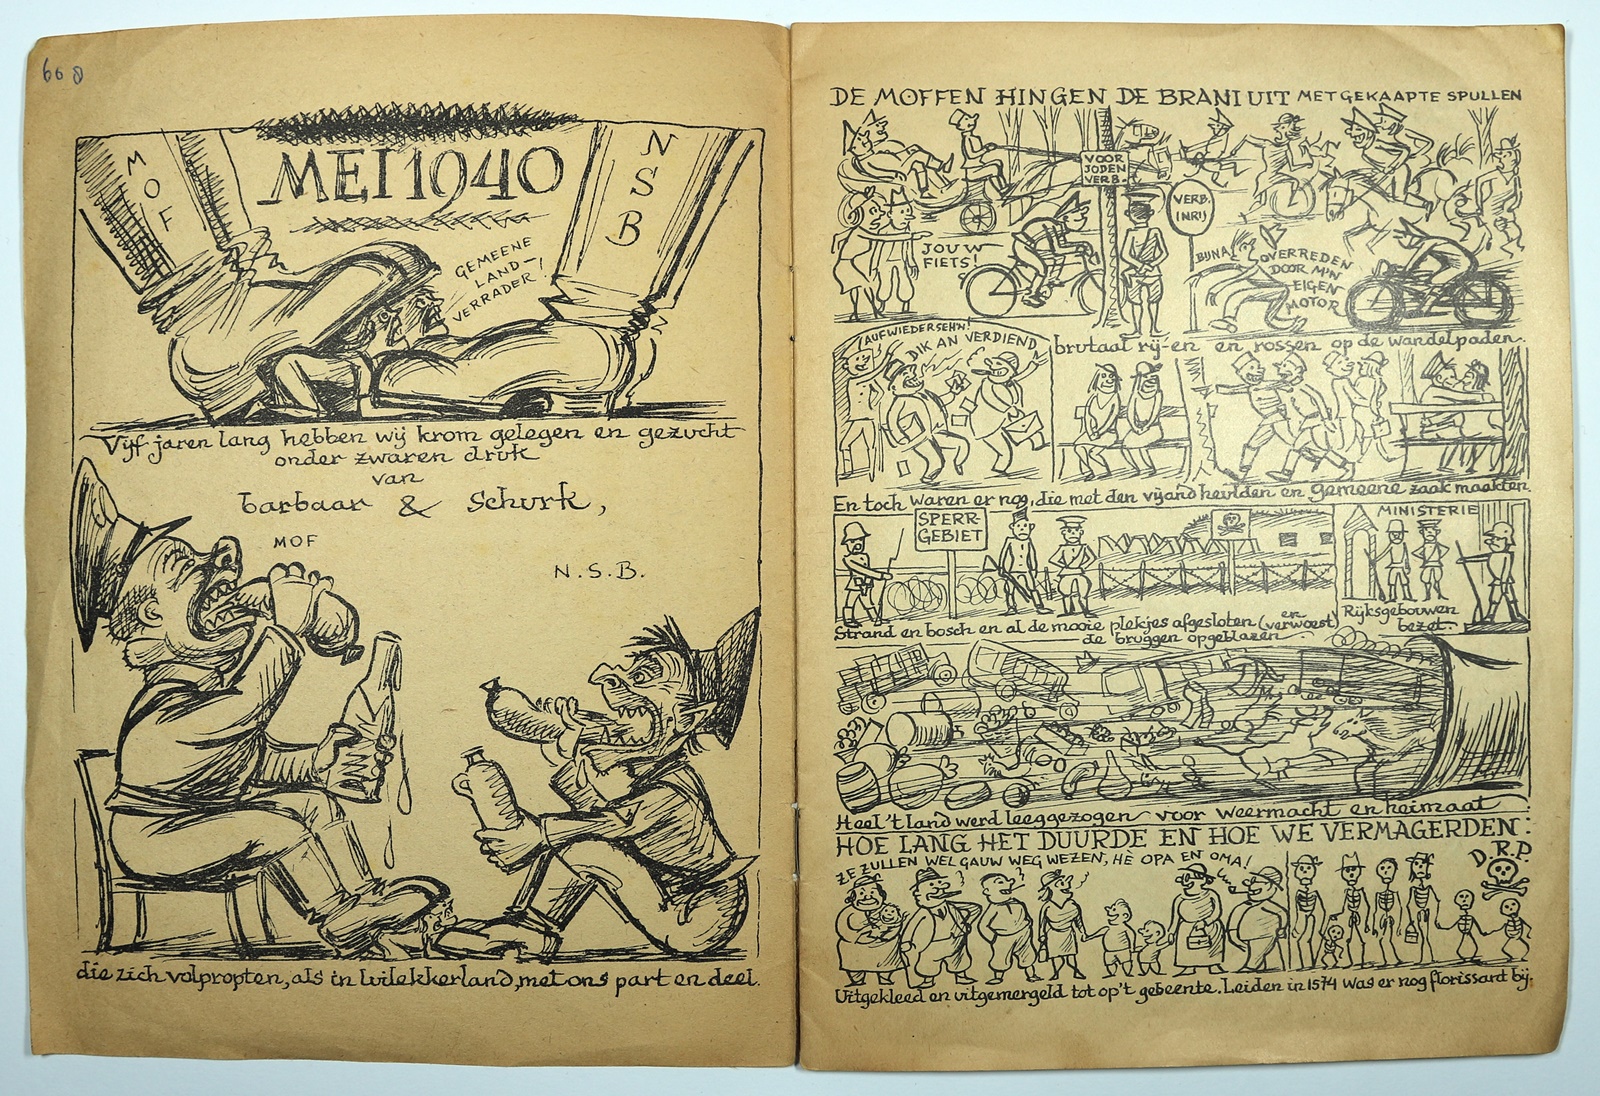 668
MOF
MEI 1940
NSB
GEMEENE
LAND-
VERRADER!
Vijf jaren lang hebben wij krom gelegen en gezucht
onder zwaren druk
van
barbaar & Schurk,
MOF
N.S.B.
die zich volpropten, als in luilekkerland, met ons part en deel.
DE MOFFEN HINGEN DE BRANI UIT MET GEKAAPTE SPULLEN
VOOR
JODEN
VERB.
VERB.
INRIJ
JOUW
FIETS!
BIJNA OVERREDEN
DOOR M'N
EIGEN
MOTOR
brutaal rij-en en rossen op de wandelpaden.
AUFWIEDERSEH'N!
DIK AN VERDIEND
En toch waren er nog, die met den vijand heulden en gemeene zaak maakten.
SPERR-
GEBIET
MINISTERIE
Strand en bosch en al de mooie plekjes afgesloten (en verwoest)
de bruggen opgeblazen
Rijksgebouwen
bezet.
Heel 't land werd leeggezogen voor weermacht en heimaat
HOE LANG HET DUURDE EN HOE WE VERMAGERDEN:
ZE ZULLEN WEL GAUW WEG WEZEN, HÈ OPA EN OMA!
D.R.P.
Uitgekleed en uitgemergeld tot op't gebeente. Leiden in 1574 was er nog florissant bij.